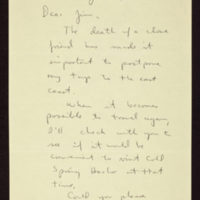 Dear Jim,
The death of a close
friend has made it
important to postpone
my trip to the east
coast.
When it becomes
possible to travel again,
I'll check with you to
see if it would be
convenient to visit Cold
Spring Harbor at that
time.
Could you please